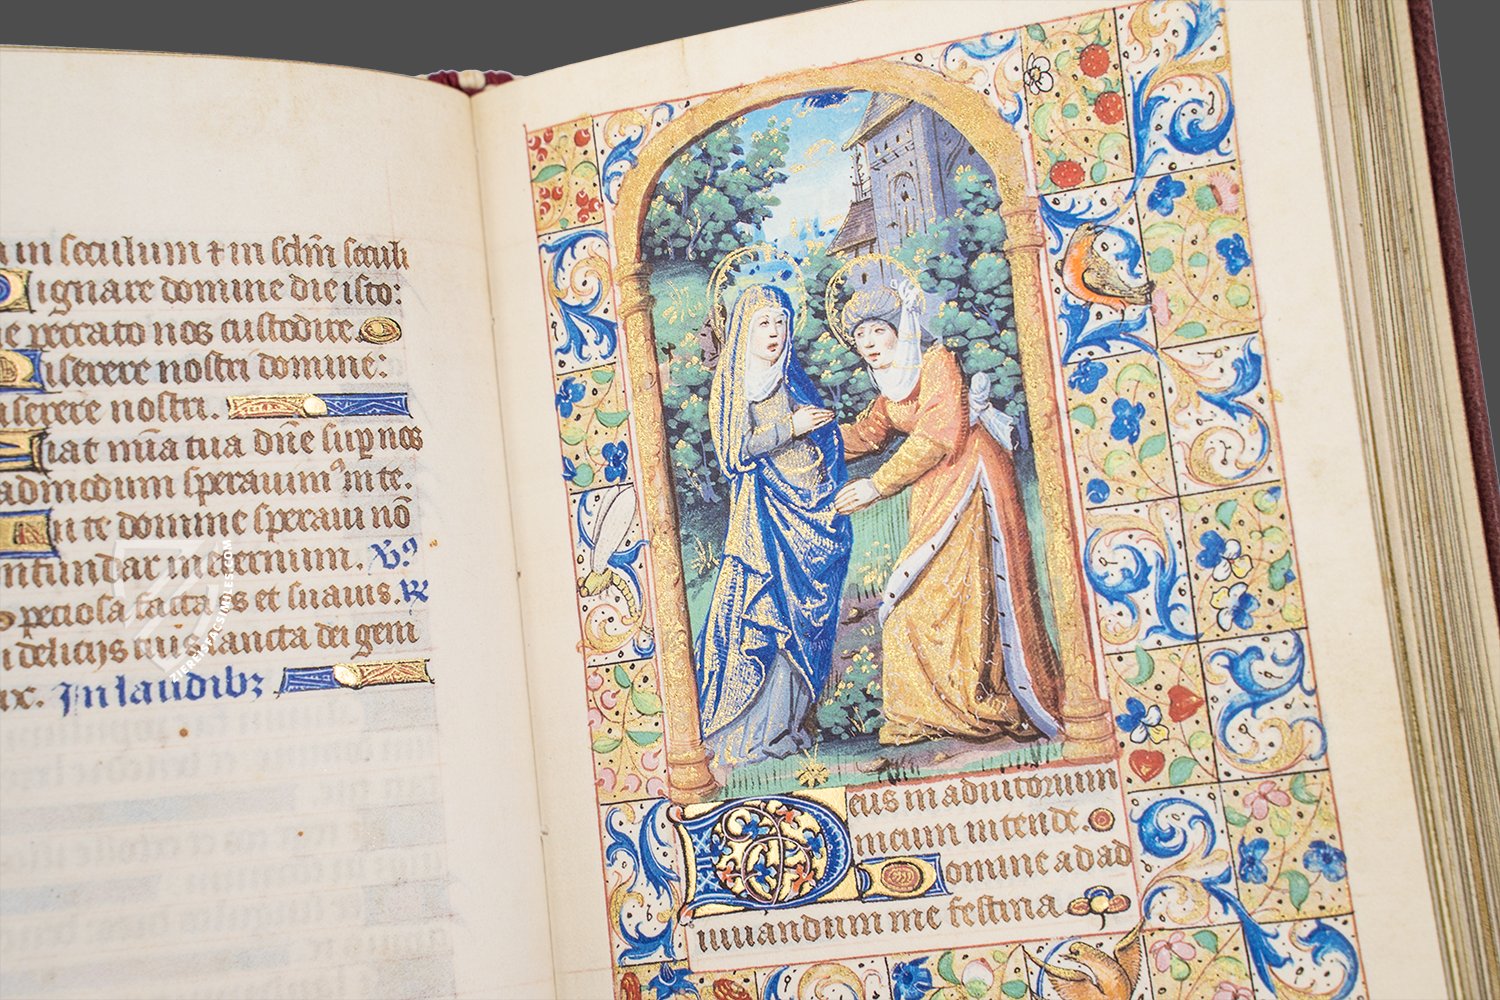 in seculum ⁊ in sclm̄ seculi
Dignare domine die isto:
peccato nos custodire
Miserere nostri domine:
miserere nostri.
Fiat mīa tua dn̄e sup nos
admodum sperauimꝰ in te.
In te domine speraui nō
confundar in eternum. Vꝰ
Speciosa facta es et suauis. ℟
deliciis tuis sancta dei geni
trix. In laudibꝫ
Deus in adiutorium
meum intende.
Domine ad ad
iuuandum me festina
ZIEREISFACSIMILES.COM